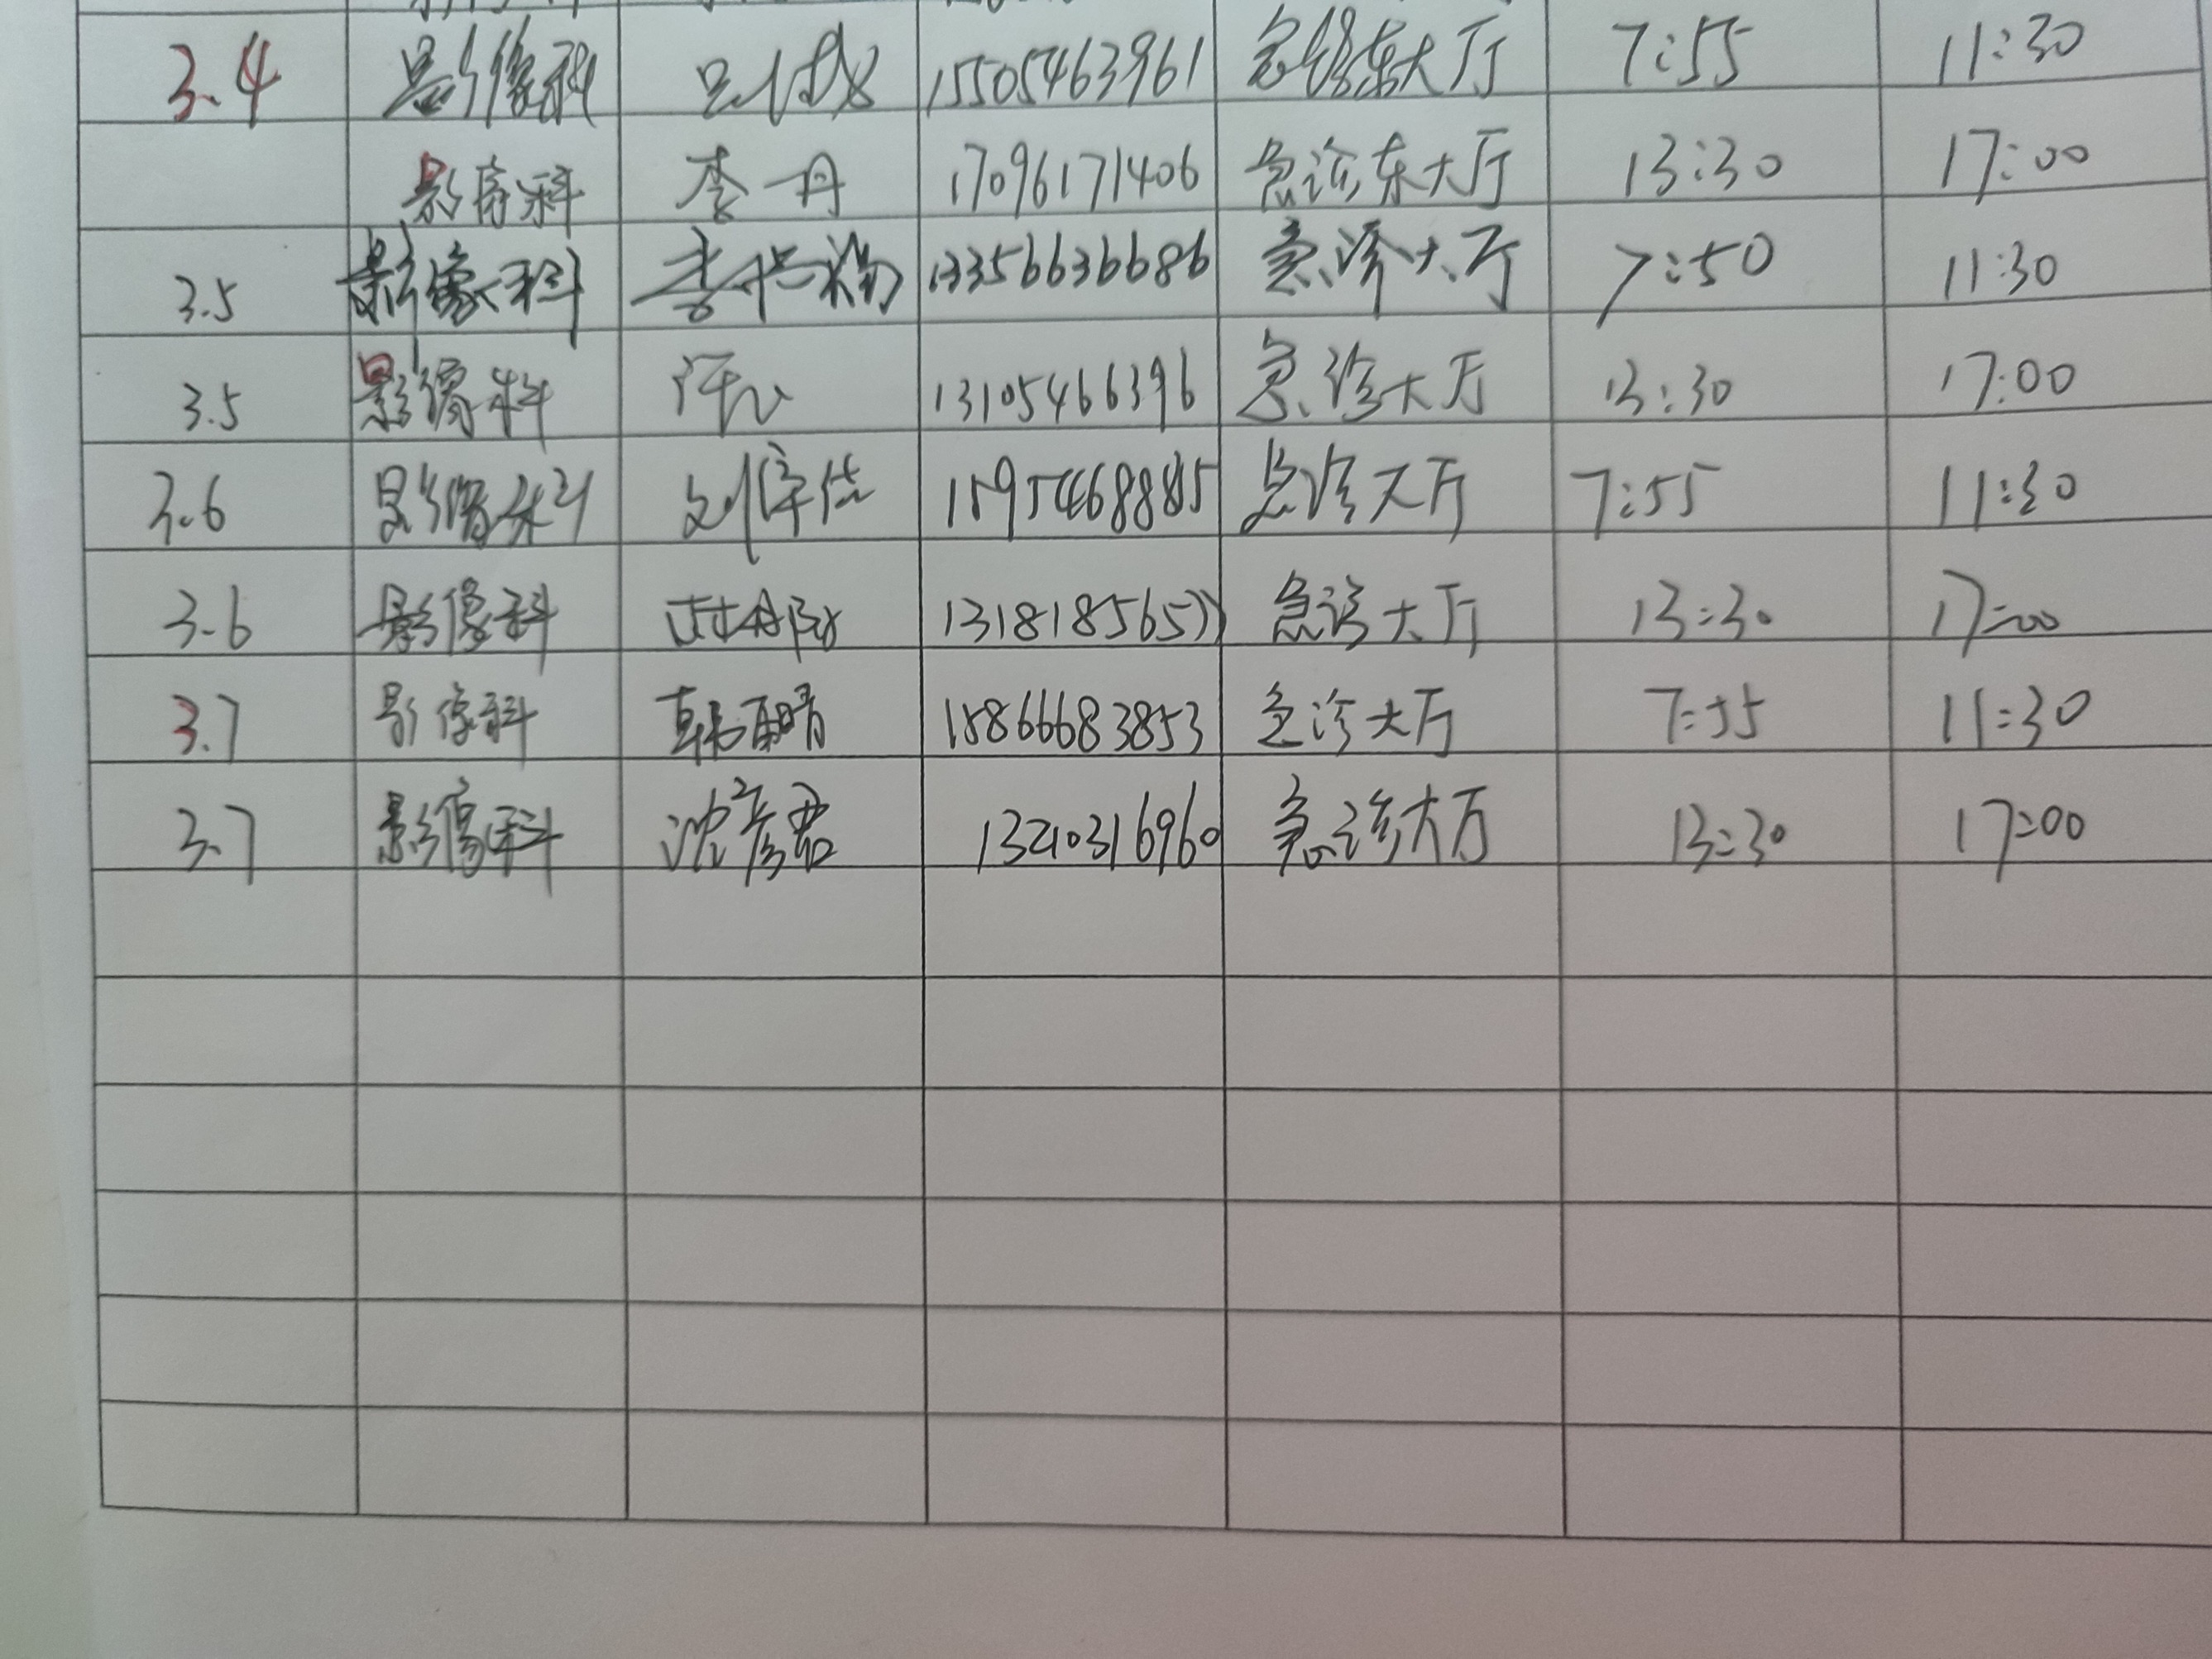 3.4 影像科 15505463961 急诊东大厅 7:55 11:30
影像科 李丹 17096171406 急诊东大厅 13:30 17:00
3.5 影像科 13356636686 急诊大厅 7:50 11:30
3.5 影像科 13105466396 急诊大厅 13:30 17:00
3.6 影像科 急诊大厅 7:55 11:30
3.6 影像科 13181856577 急诊大厅 13:30 17:00
3.7 影像科 韩晴 15866683853 急诊大厅 7:55 11:30
3.7 影像科 沈彦君 13210316960 急诊大厅 13:30 17:00